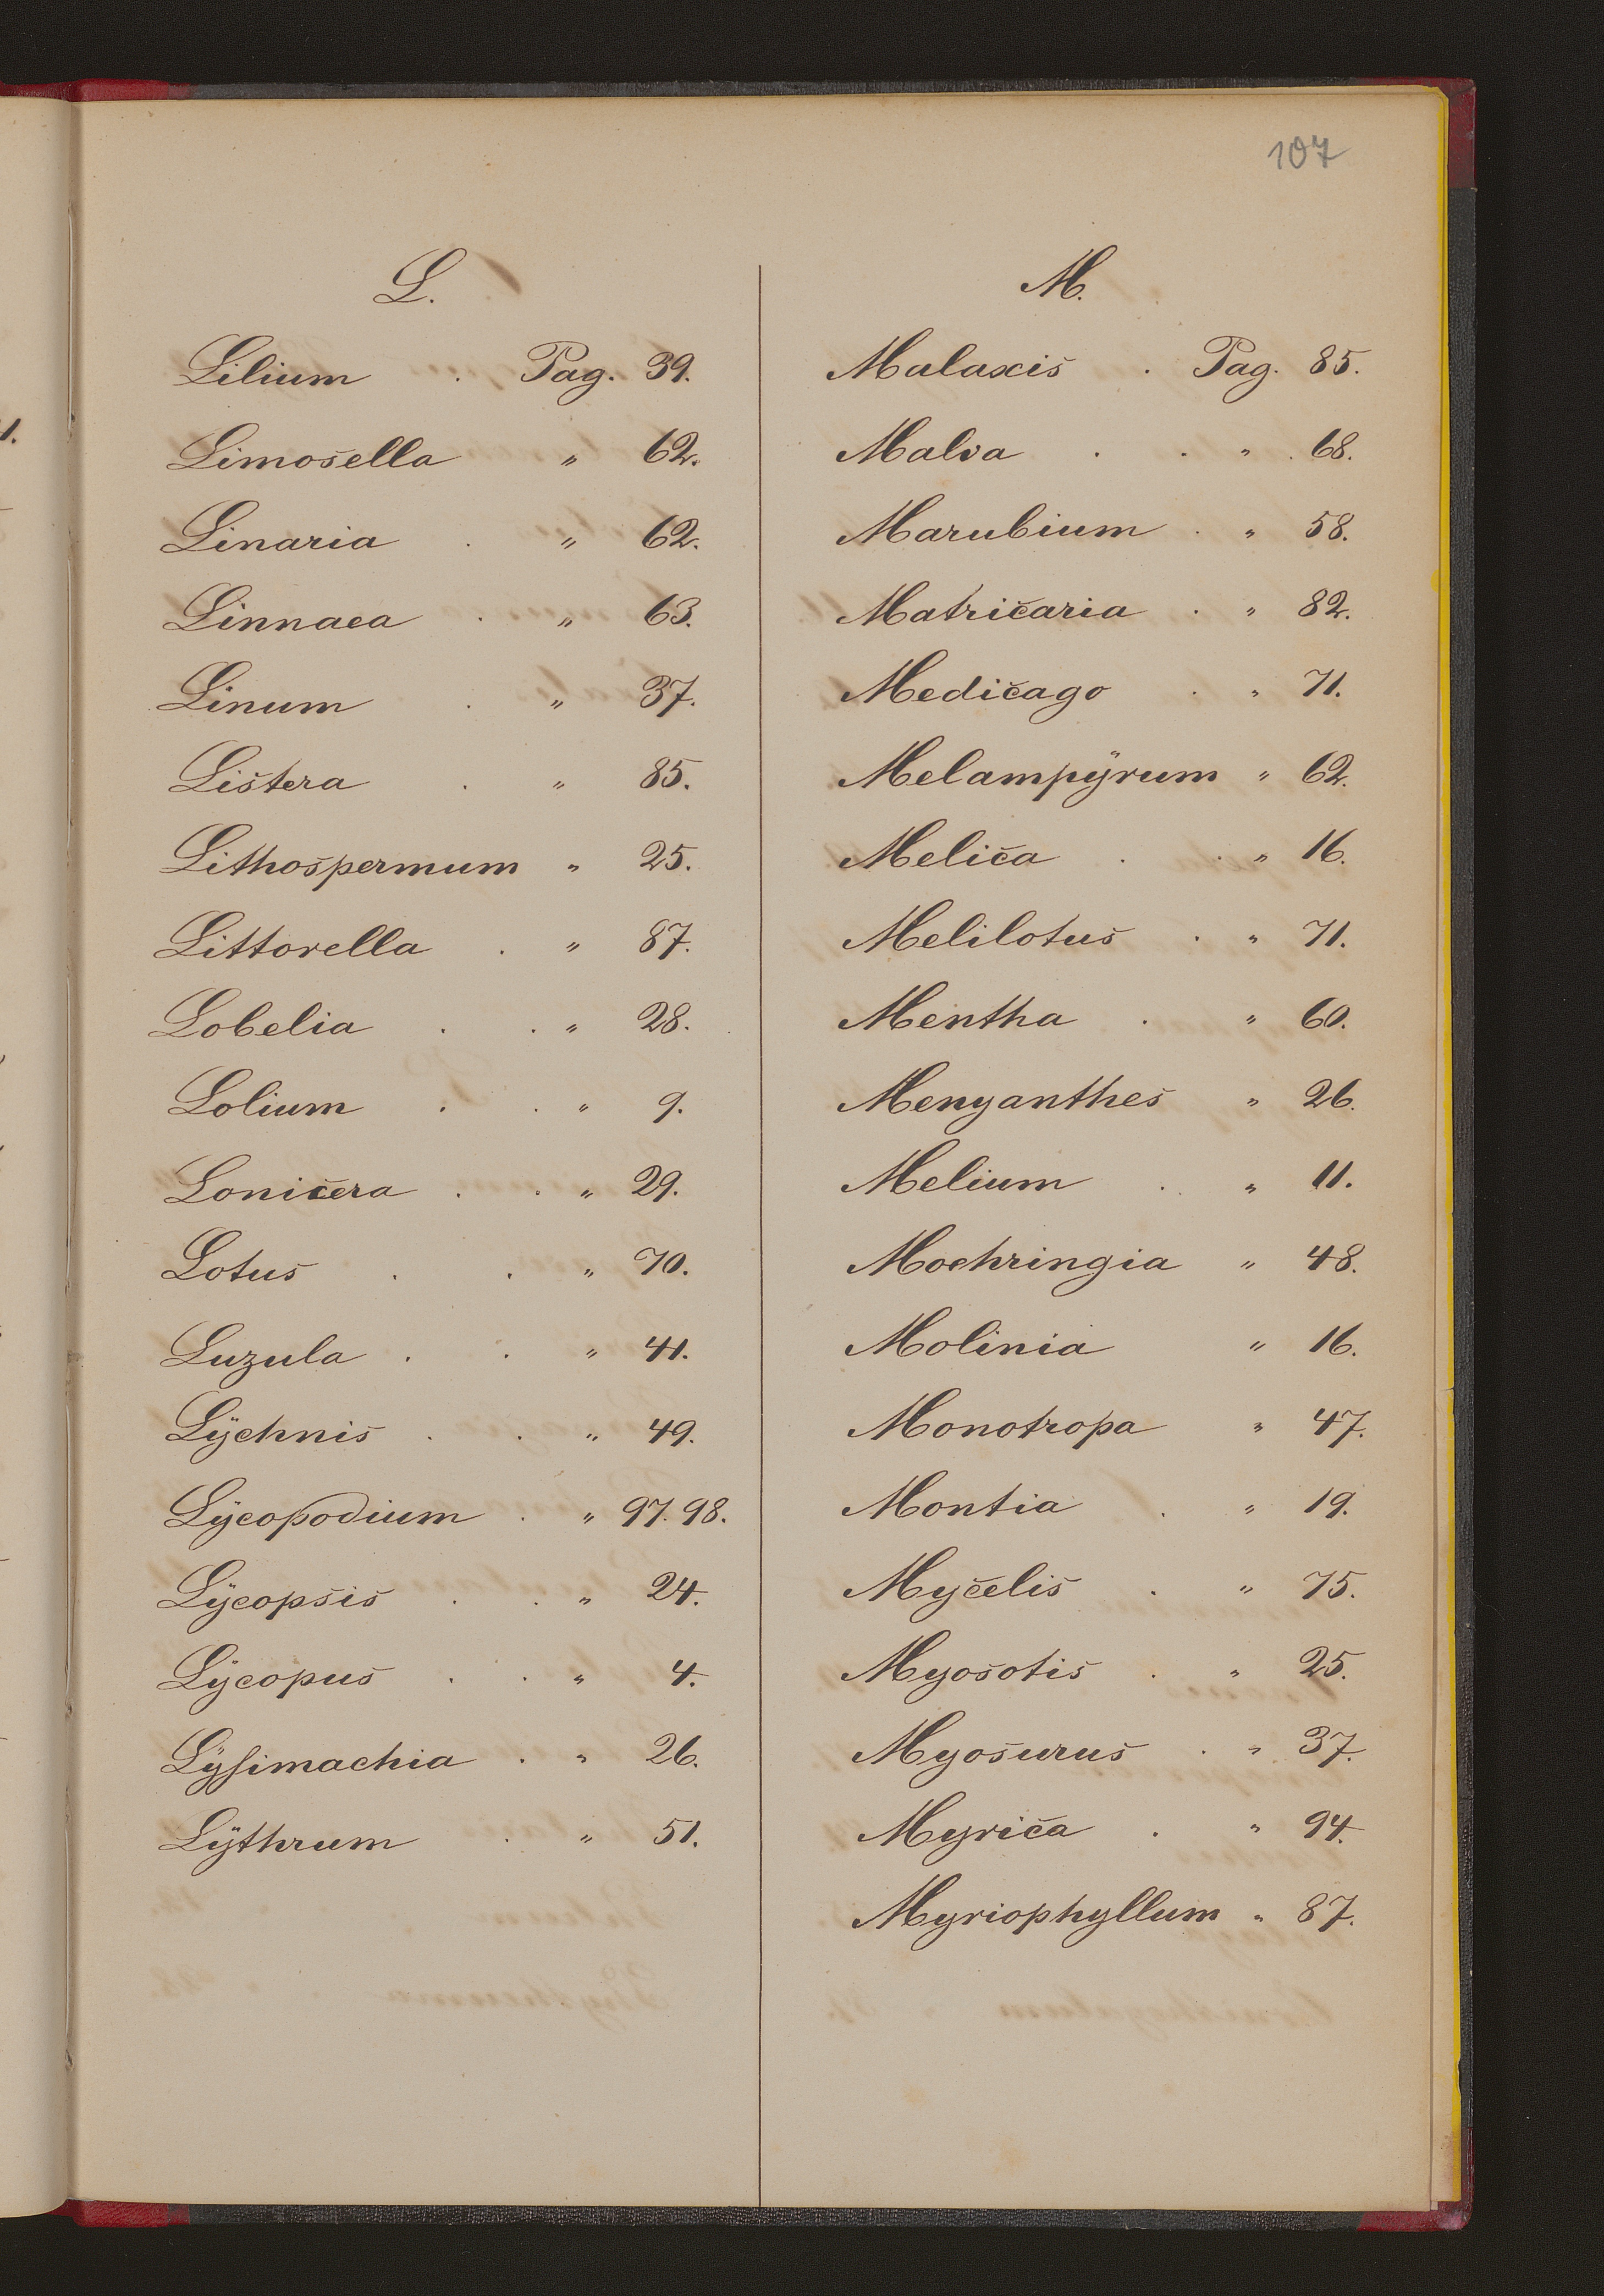 107
L.
Lilium . Pag. 39.
Limosella " 62.
Linaria . " 62.
Linnaea . " 63.
Linum . " 37.
Listera . " 85.
Lithospermum " 25.
Littorella . " 87.
Lobelia . . " 28.
Lolium . . " 9.
Lonicera . . " 29.
Lotus . . " 70.
Luzula . . " 41.
Lÿchnis . . " 49.
Lÿcopodium . " 97. 98.
Lÿcopsis . . " 24.
Lÿcopus . . " 4.
Lÿsimachia . " 26.
Lÿthrum . " 51.
M.
Malaxis . Pag. 85.
Malva . . " 68.
Marubium . " 58.
Matricaria . " 82.
Medicago . " 71.
Melampÿrum " 62.
Melica . . " 16.
Melilotus . " 71.
Mentha . " 60.
Menyanthes " 26.
Melium . " 11.
Moehringia " 48.
Molinia " 16.
Monotropa " 47.
Montia . " 19.
Mycelis . " 75.
Myosotis . " 25.
Myosurus . " 37.
Myrica . " 94.
Myriophyllum " 87.